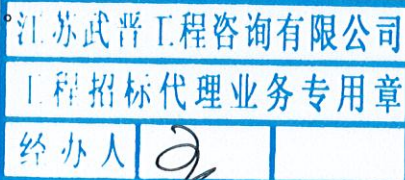 江苏武晋工程咨询有限公司
工程招标代理业务专用章
经办人